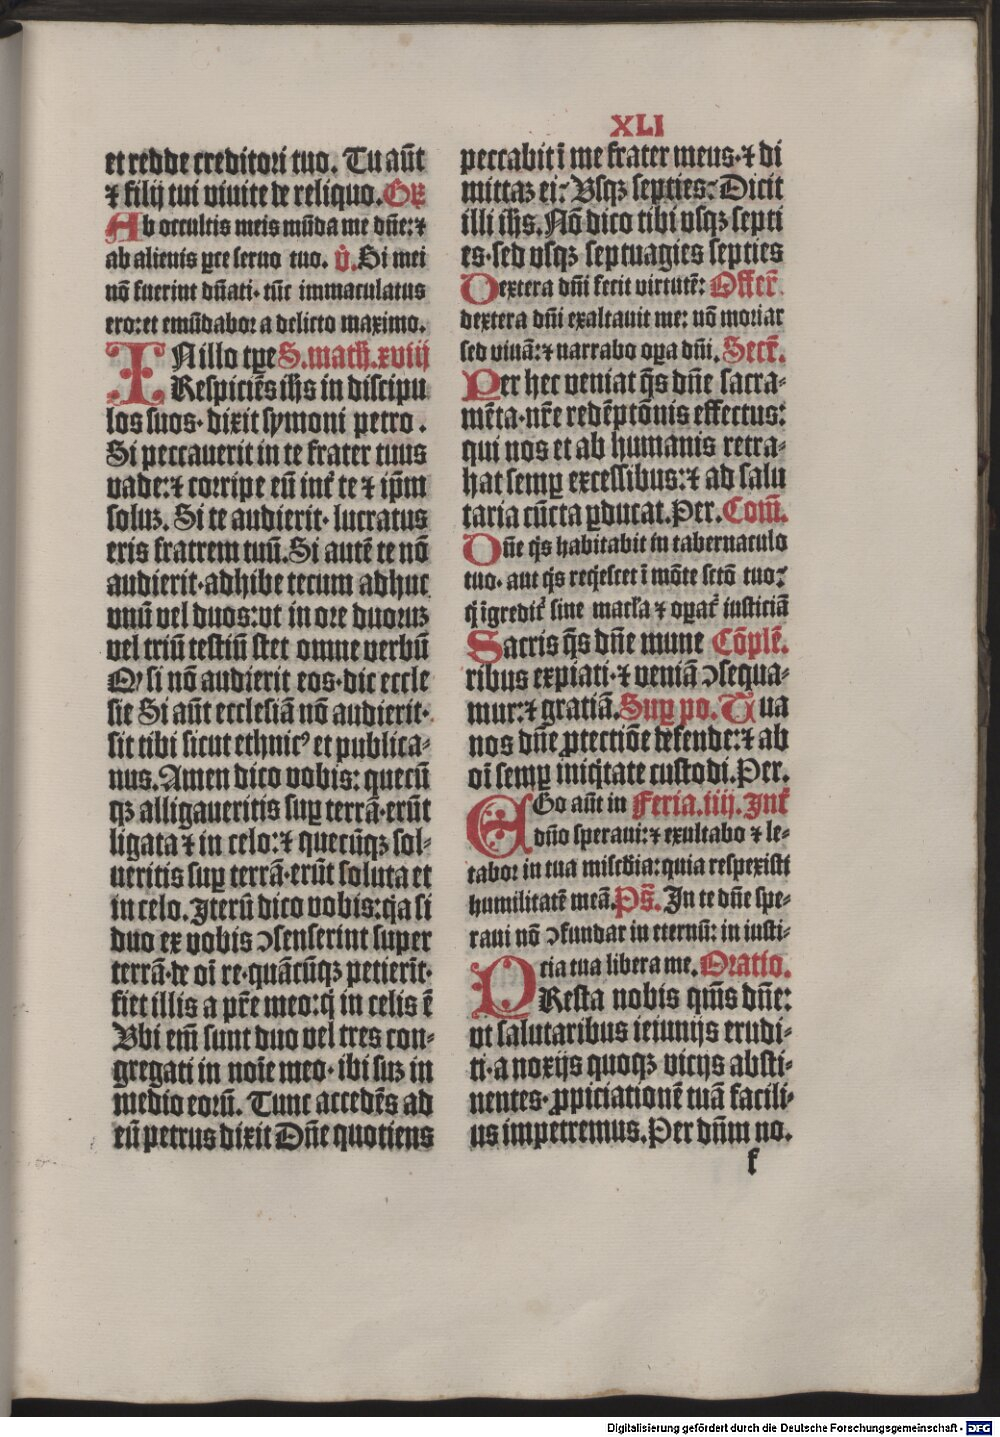 XLI
et redde creditori tuo. Tu aūt
⁊ filij tui viuite de reliquo. Gr̄
Ab occultis meis mūda me dn̄e: ⁊
ab alienis ꝑce seruo tuo. v̇. Si mei
nō fuerint dn̄ati· tūc immaculatus
ero: et emūdabor a delicto maximo.
INillo tꝑe S. math̄. xviij
Respiciēs ih̄s in discipu
los suos· dixit symoni petro.
Si peccauerit in te frater tuus
vade: ⁊ corripe eū int̄ te ⁊ ip̄m
soluꝫ. Si te audierit· lucratus
eris fratrem tuū. Si autē te nō
audierit· adhibe tecum adhuc
vnū vel duos: vt in ore duoruꝫ
vel triū testiū stet omne verbū
Qꝩ si nō audierit eos· dic eccle
sie Si aūt ecclesiā nō audierit·
sit tibi sicut ethnicꝰ et publica-
nus. Amen dico vobis: quecū
qꝫ alligaueritis suꝑ terrā· erūt
ligata ⁊ in celo: ⁊ quecūqꝫ sol-
ueritis suꝑ terrā· erūt soluta et
in celo. Iterū dico vobis: q̇a si
duo ex vobis ↄsenserint super
terrā· de oī re· quācūqꝫ petierīt·
fiet illis a pr̄e meo: q̇ in celis ē
Vbi em̄ sunt duo vel tres con-
gregati in noīe meo· ibi suꝫ in
medio eorū. Tunc accedēs ad
eū petrus dixit Dn̄e quotiens
peccabit ī me frater meus· ⁊ di
mittaꝫ ei: Vsqꝫ septies: Dicit
illi ih̄s. Nō dico tibi vsqꝫ septi
es· sed vsqꝫ septuagies septies
Dextera dn̄i fecit virtutē: Offer̄.
dextera dn̄i exaltauit me: nō moriar
sed viuā: ⁊ narrabo oꝑa dn̄i. Secr̄.
Per hec veniat q̄s dn̄e sacra-
mēta· nr̄e redēptōnis effectus:
qui nos et ab humanis retra-
hat semꝑ excessibus: ⁊ ad salu
taria cūcta ꝓducat. Per. Com̄.
Dn̄e q̇s habitabit in tabernaculo
tuo· aut q̇s reqͥescet ī mōte sctō tuo:
q̇ īgredit̄ sine macl̄a ⁊ oꝑat̄ iusticiā
Sacris q̄s dn̄e mune Cōplē.
ribus expiati· ⁊ veniā ↄsequa-
mur: ⁊ gratiā. Suꝑ po. Tua
nos dn̄e ꝓtectiōe defende: ⁊ ab
oī semꝑ iniq̇tate custodi. Per.
EGo aūt in Feria. iiij. Int̄
dn̄o speraui: ⁊ exultabo ⁊ le-
tabor in tua misc̄dia: quia respexisti
humilitatē meā. Ps̄. In te dn̄e spe-
raui nō ↄfundar in eternū: in iusti-
cia tua libera me. Oratio.
PResta nobis qm̄s dn̄e:
vt salutaribus ieiunijs erudi-
ti· a noxijs quoqꝫ vicijs absti-
nentes· ꝓpiciationē tuā facili-
us impetremus. Per dn̄m no.
f
Digitalisierung gefördert durch die Deutsche Forschungsgemeinschaft - DFG